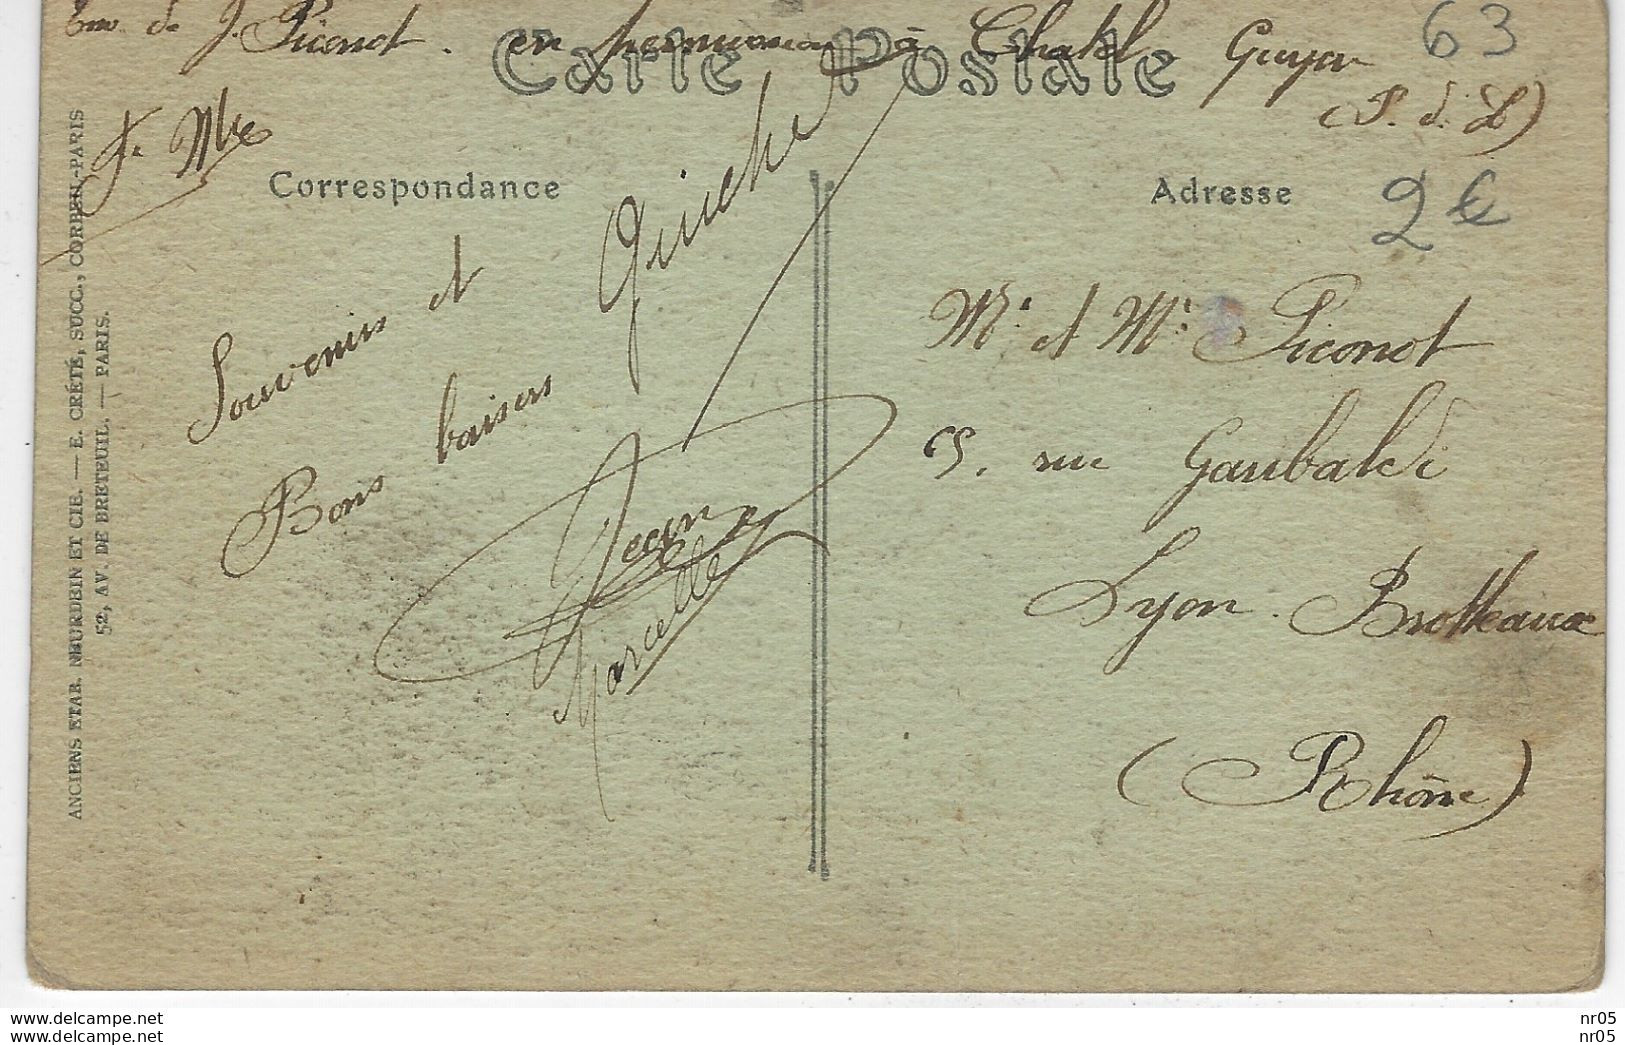 Env. de J. Piconot. en permission à Chatel Guyon 63
Carte Postale
(P. d. D)
F. Mre
Correspondance
Adresse
2 €
Souvenirs et
Bons baisers
Jean
Marcelle
Mr. et Me. Piconot
5. rue Garibaldi
Lyon. Brotteaux
(Rhône)
ANCIENS ETAB. NEURDEIN ET CIE. — E. CRÉTÉ, SUCC., CORBEIL-PARIS
52, AV. DE BRETEUIL. — PARIS.
www.delcampe.net
nr05
www.delcampe.net
nr05